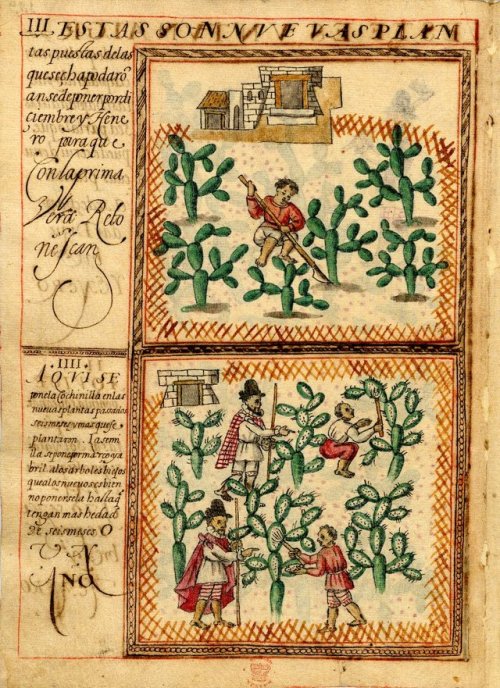 III. ESTAS SON NVEVAS PLAN
tas puestas delas
que se echa podarō
an se de poner por di
ciembre y Hene
ro para que
Con la prima
Vera Reto
ñescan
IIII.
AQVI SE
pone la Cochinilla en las
nuevas plantas passados
seis meses y mas que se
plantaron. La semi
lla se pone por março y a
bril a los arboles biejos
que a los nuevos es bien
no ponersela hasta q̄
tengan mas hedad
de seis meses. O
V N
AÑO